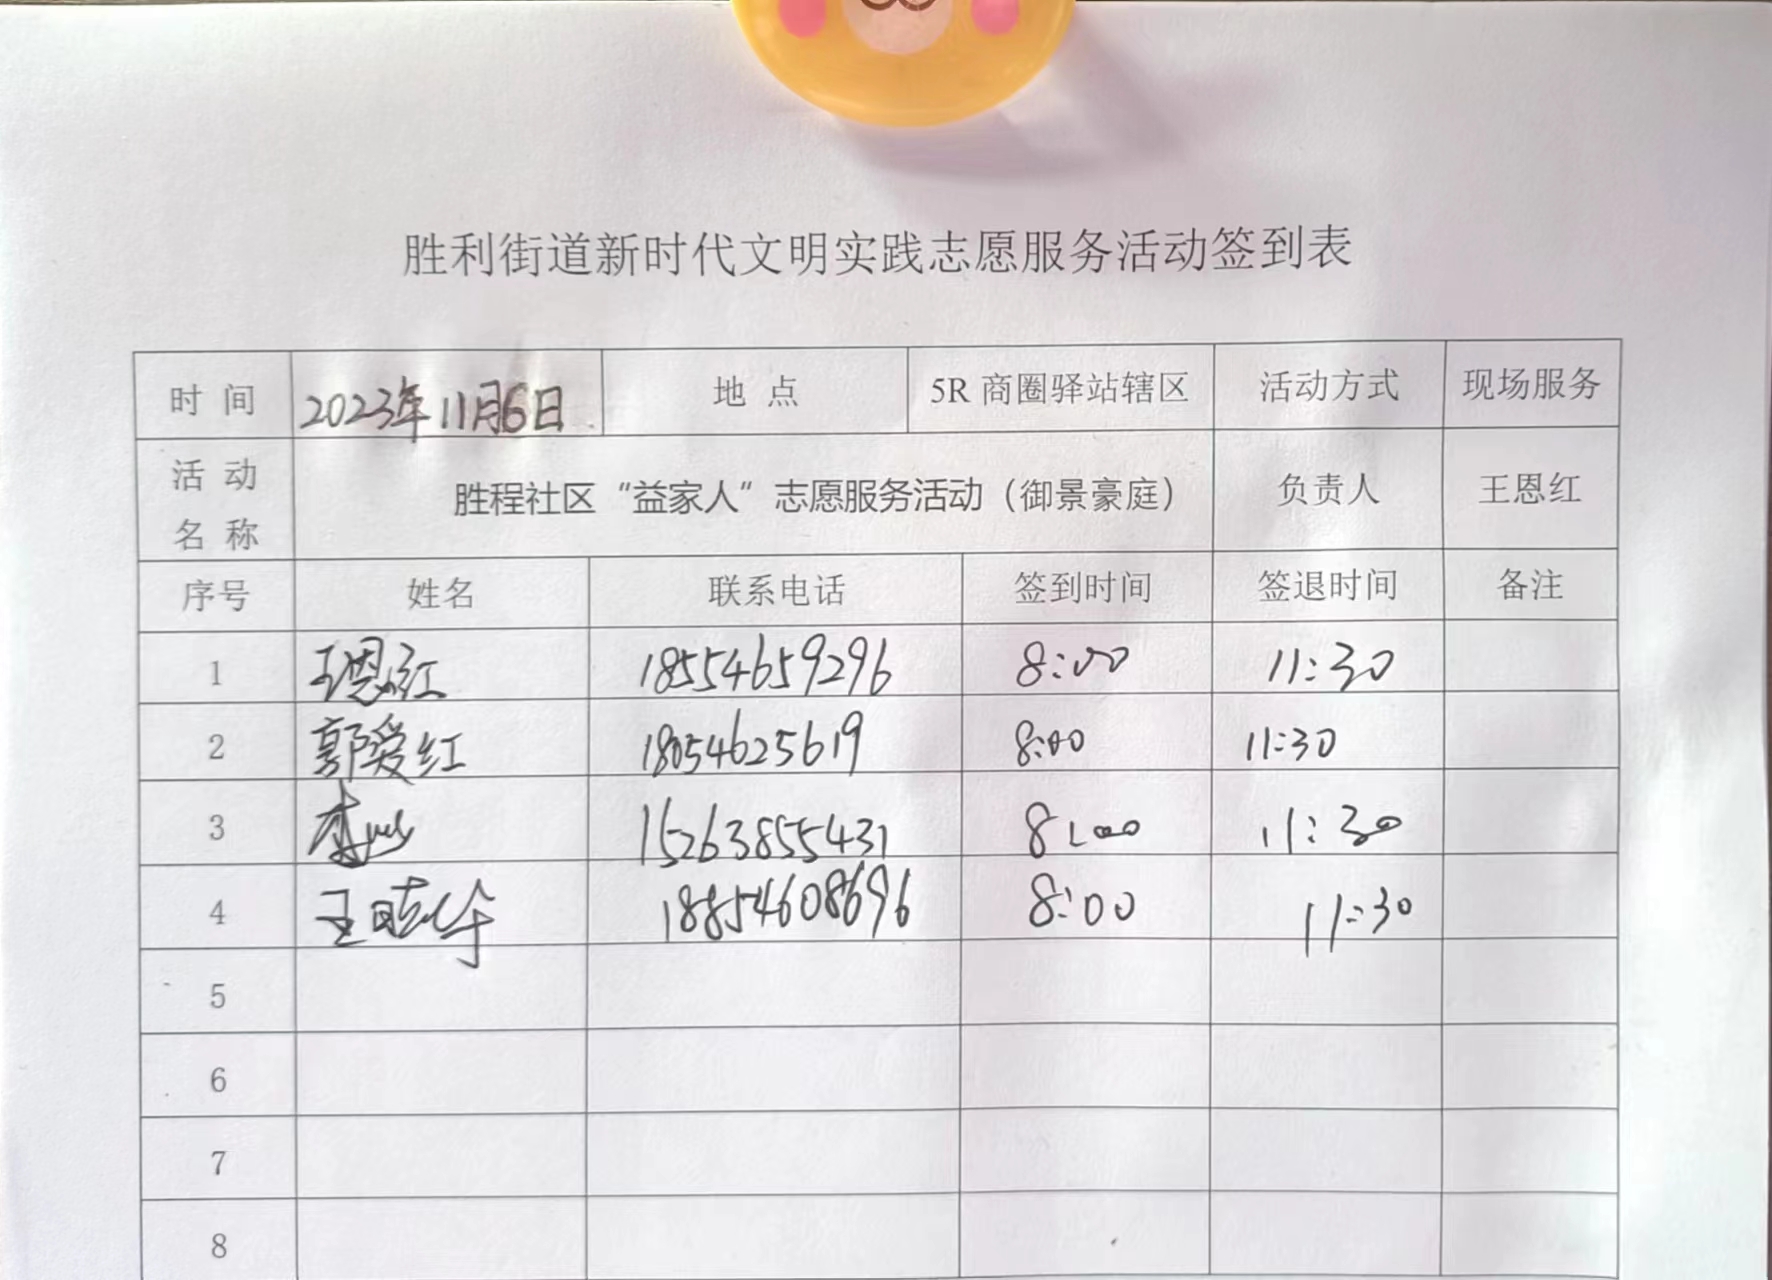 胜利街道新时代文明实践志愿服务活动签到表
时 间 2023年11月6日 地 点 5R 商圈驿站辖区 活动方式 现场服务
活 动
名 称 胜程社区“益家人”志愿服务活动（御景豪庭） 负责人 王恩红
序号 姓名 联系电话 签到时间 签退时间 备注
1 王恩红 18554659296 8:00 11:30
2 郭爱红 18054625619 8:00 11:30
3 15263855431 8:00 11:30
4 王晓华 18854608696 8:00 11:30
5
6
7
8